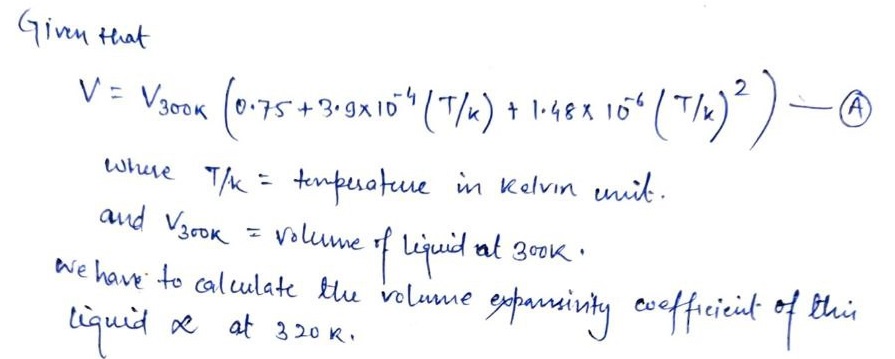 Given that
V = V300K (0.75 + 3.9 x 10^-4 (T/K) + 1.48 x 10^-6 (T/K)^2) — Ⓐ
where T/K = temperature in Kelvin unit.
and V300K = volume of liquid at 300K.
We have to calculate the volume expansivity coefficient of this
liquid α at 320 K.